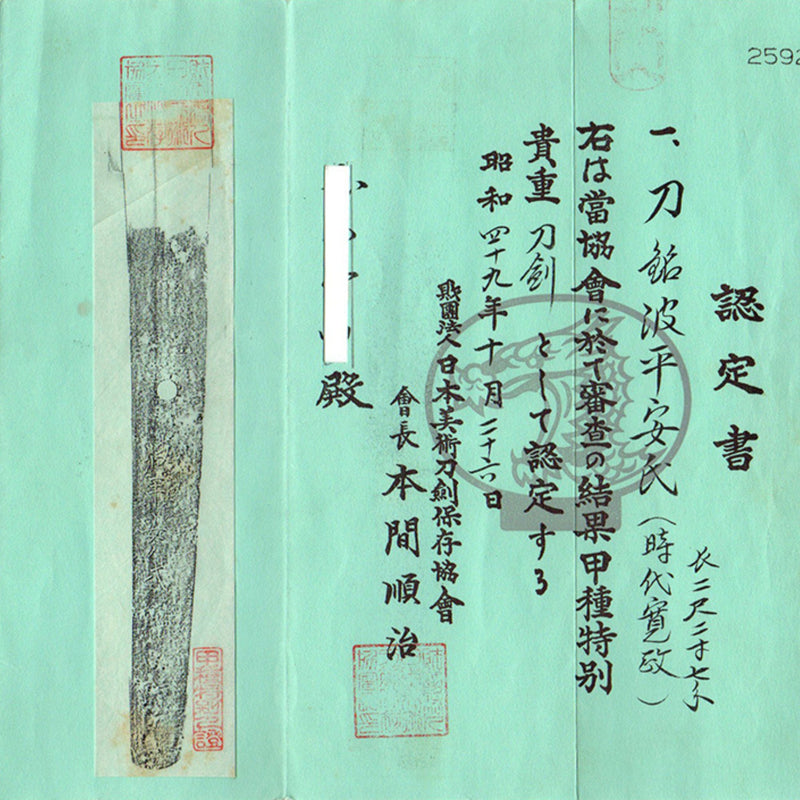 2592
認定書
一、刀 銘波平安氏（時代寛政）
長二尺二寸七分
右は當協會に於て審査の結果甲種特別
貴重 刀劍 として認定する
昭和四十九年十月二十六日
財團法人日本美術刀劍保存協會
會長 本間順治
殿
甲種特別之證